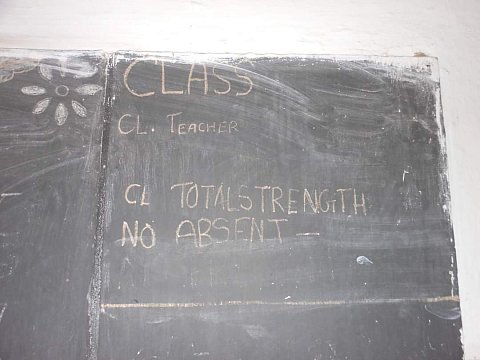 CLASS
CL. TEACHER
CL TOTALSTRENGTH
NO ABSENT —